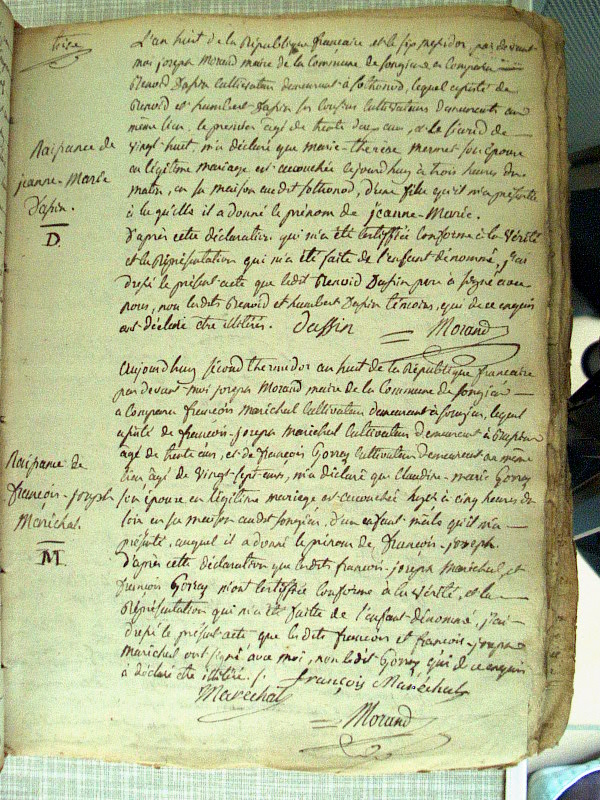 toise
L'an huit de la République francaise et le six messidor, par devant
moi joseph Morand maire de la Commune de songieu a Comparu
Benoid Dapin Cultivateur demeurant à sothonod, lequel assisté de
Benoid et humbert Dapin ses Cousins Cultivateurs demeurants au
même lieu, le premier agé de trente deux ans, et le second de
vingt huit, m'a déclaré que marie-therèse mermet son épouse
en légitime mariage est accouchée cejourdhuy à trois heures du
matin, en sa maison audit sothonod, d'une fille qu'il m'a présentée
à laquelle il a donné le prénom de jeanne-Marie.
D'après cette déclaration qui m'a été Certiffiée Conforme à la vérité
et la Représentation qui m'a été faite de l'enfant dénommé, j'ai
dressé le présent acte que ledit Benoid Dapin père a signé avec
nous, non lesdits Benoid et humbert Dapin témoins, qui de ce enquis
ont déclaré être illitérés. Dassin Morand
Naissance de
jeanne-Marie
Dapin.
D.
Aujourdhuy second thermidor an huit de la République francaise
par devant moi joseph Morand maire de la Commune de songieu
a Comparu francois Maréchal Cultivateur demeurant à songieu, lequel
assisté de francois-joseph Maréchal Cultivateur demeurant à
agé de trente ans, et de françois Gorrey Cultivateur demeurant au même
lieu âgé de vingt sept ans, m'a déclaré que Claudine-marie Gorrey
son épouse en légitime mariage est accouchée hyer à cinq heures du
soir en sa maison audit songieu, d'un enfant mâle qu'il m'a
présenté, auquel il a donné le prénom de francois-joseph.
D'après cette déclaration que lesdits francois-joseph Maréchal et
francois Gorrey m'ont Certiffiée Conforme à la vérité, et la
Représentation qui m'a été faitte de l'enfant dénommé, j'ai
dressé le présent acte que lesdits francois et francois-joseph
Maréchal ont signé avec moi, non ledit Gorrey qui de ce enquis
a déclaré être illitéré. françois Maréchal
Maréchal
Morand
Naissance de
francois-joseph
Maréchal.
M.